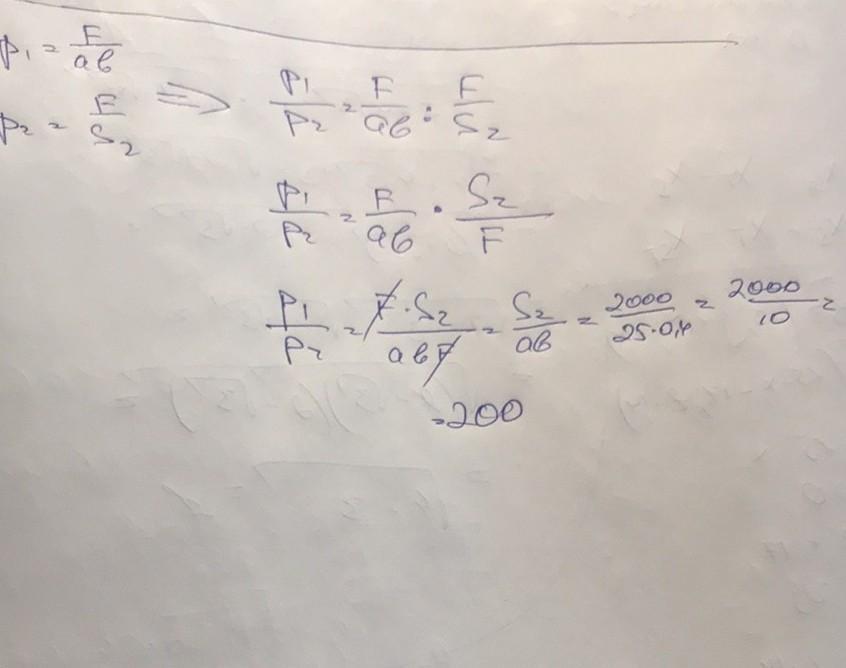 p₁ = F/ab
p₂ = F/S₂ ⇒ P₁/P₂ = F/ab : F/S₂
P₁/P₂ = F/ab · S₂/F
P₁/P₂ = F·S₂/abF = S₂/ab = 2000/25·0,4 = 2000/10 =
=200